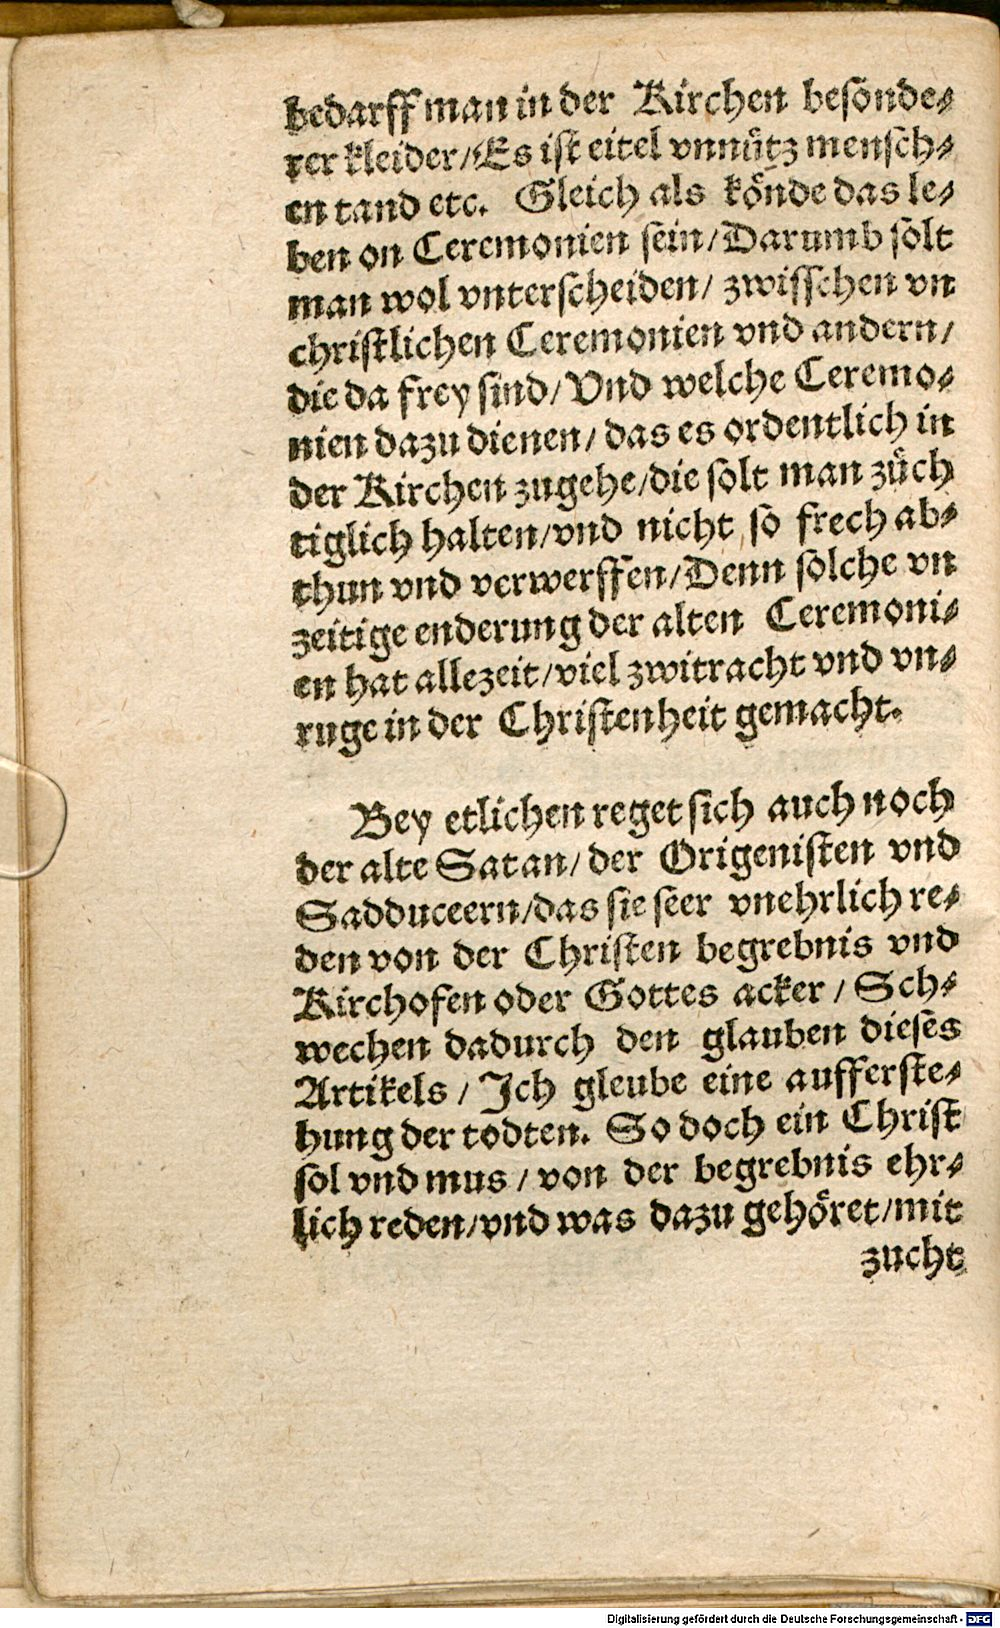 bedarff man in der Kirchen besonde-
rer kleider/Es ist eitel vnnütz mensch-
en tand etc. Gleich als könde das le-
ben on Ceremonien sein/Darumb solt
man wol vnterscheiden/ zwisschen vn
christlichen Ceremonien vnd andern/
die da frey sind/ Vnd welche Ceremo-
nien dazu dienen/ das es ordentlich in
der Kirchen zugehe/die solt man züch
tiglich halten/vnd nicht so frech ab-
thun vnd verwerffen/Denn solche vn
zeitige enderung der alten Ceremoni-
en hat allezeit/viel zwitracht vnd vn-
ruge in der Christenheit gemacht.
Bey etlichen reget sich auch noch
der alte Satan/ der Origenisten vnd
Sadduceern/das sie seer vnehrlich re-
den von der Christen begrebnis vnd
Kirchofen oder Gottes acker / Sch-
wechen dadurch den glauben dieses
Artikels / Ich gleube eine aufferste-
hung der todten. So doch ein Christ
sol vnd mus / von der begrebnis ehr-
lich reden/vnd was dazu gehöret/mit
zucht
Digitalisierung gefördert durch die Deutsche Forschungsgemeinschaft - DFG